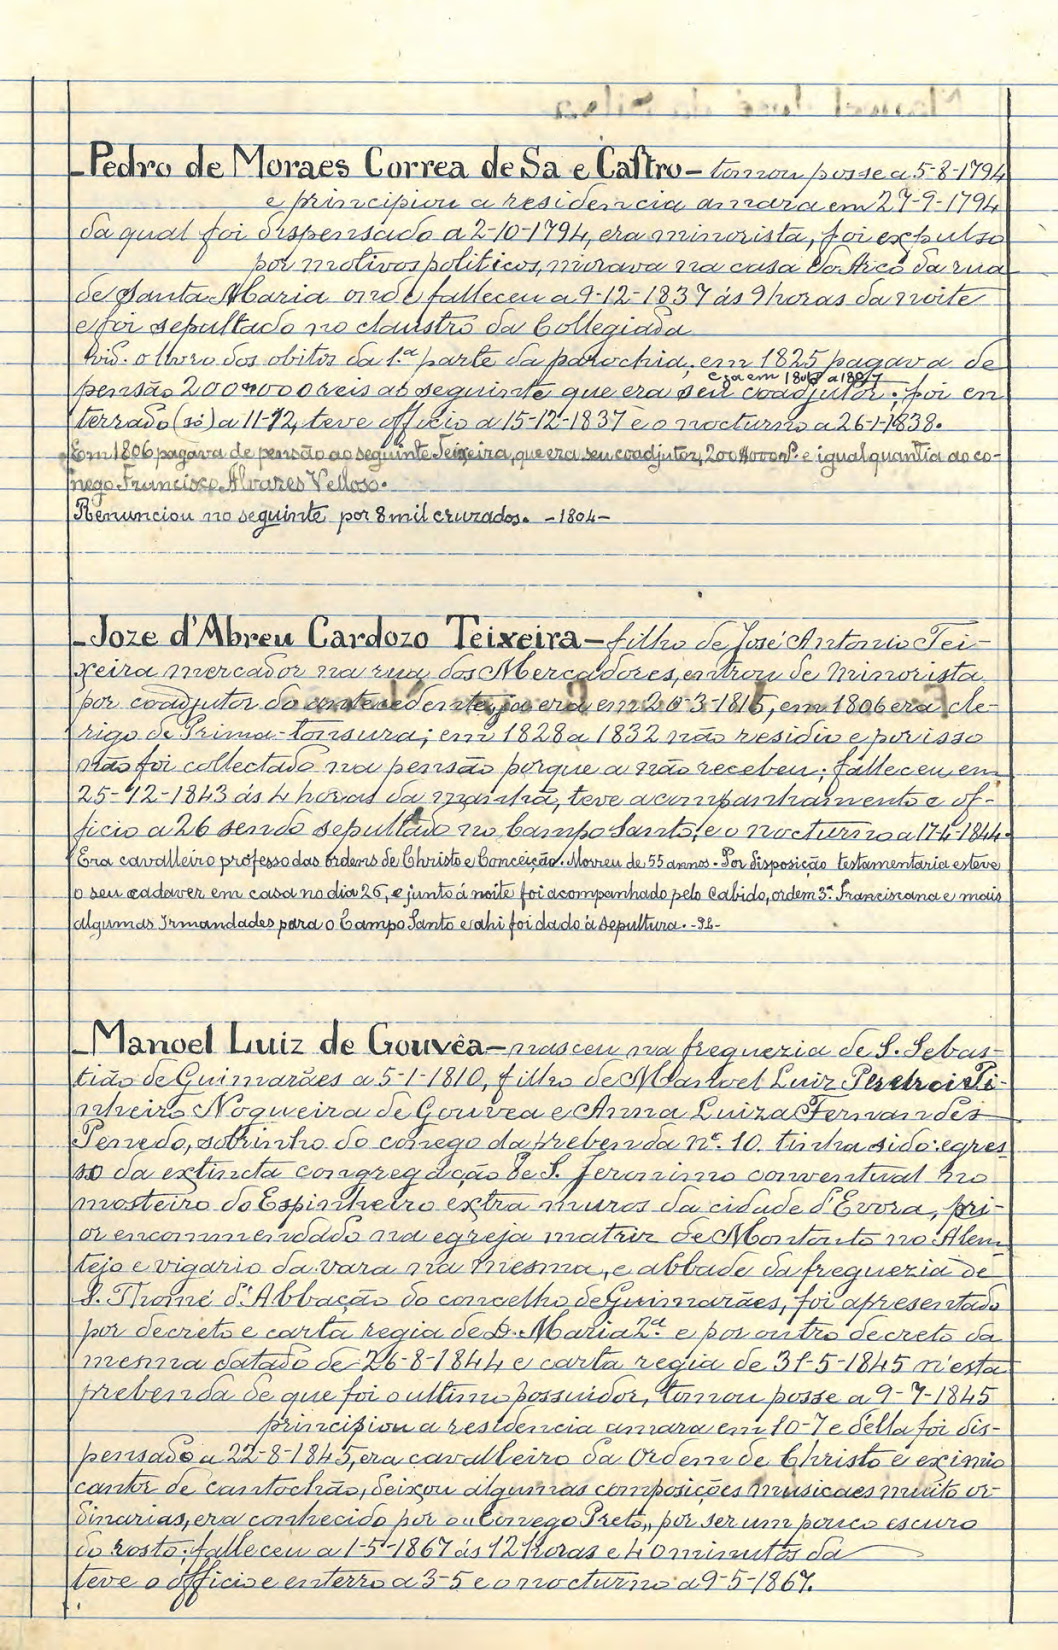 Manoel José da Silva
-Pedro de Moraes Correa de Sa e Castro- tomou posse a 5-8-1794
e principiou a residencia amara em 27-9-1794
da qual foi dispensado a 2-10-1794, era minorista, foi expulso
por motivos politicos, morava na casa do Arco da rua
de Santa Maria onde falleceu a 9-12-1837 ás 9 horas da noite
e foi sepultado no claustro da Collegiada
Vid. o livro dos obitos da 1.ª parte da parochia, em 1825 pagava de
era em 1806 a 1807
pensão 200#000 reis ao seguinte que era seu coadjutor; foi en
terrado (só) a 11-12, teve officio a 15-12-1837 e o nocturno a 26-1-1838.
Em 1806 pagava de pensão ao seguinte Teixeira, que era seu coadjutor, 200#000 rs. e igual quantia ao co-
nego Francisco Alvares Velloso.
Renunciou no seguinte por 8 mil cruzados. -1804-
-Joze d'Abreu Cardozo Teixeira- filho de José Antonio Tei-
xeira mercador na rua dos Mercadores, entrou de minorista
por coadjutor do antecedente, ja era em 20-3-1815, em 1806 era cle-
rigo de Prima-tonsura; em 1828 a 1832 não residio e por isso
não foi collectado na pensão porque a não recebeu; falleceu em
25-12-1843 ás 4 horas da manhã, teve acompanhamento e of-
ficio a 26 sendo sepultado no Campo Santo, e o nocturno a 17-4-1844.
Era cavalleiro professo das ordens de Christo e Conceição. Morreu de 55 annos. Por disposição testamentaria esteve
o seu cadaver em casa no dia 26, e junto á noite foi acompanhado pelo Cabido, ordem 3.ª Franciscana e mais
algumas Irmandades para o Campo Santo e ahi foi dado á sepultura. -PL-
-Manoel Luiz de Gouvêa- nasceu na freguezia de S. Sebas-
tião de Guimarães a 5-1-1810, filho de Manoel Luiz Pi-
nheiro Nogueira de Gouvea e Anna Luiza Fernandes
Penedo, sobrinho do conego da prebenda nº. 10. tinha sido egres-
so da extincta congregação de S. Jeronimo conventual no
mosteiro do Espinheiro extra muros da cidade d'Evora, pri-
or encommendado na egreja matriz de Montouto no Alem
tejo e vigario da vara na mesma, e abbade da freguezia de
S. Thomé d'Abbação do concelho de Guimarães, foi apresentado
por decreto e carta regia de D. Maria 2ª. e por outro decreto da
mesma datado de 26-8-1844 e carta regia de 31-5-1845 n'esta
prebenda de que foi o ultimo possuidor, tomou posse a 9-7-1845
principiou a residencia amara em 10-7 e della foi dis-
pensado a 22-8-1845, era cavalleiro da Ordem de Christo e eximio
cantor de cantochão, deixou algumas composições musicaes muito or-
dinarias, era conhecido por o "Conego Preto", por ser um pouco escuro
do rosto; falleceu a 1-5-1867 ás 12 horas e 40 minutos da
teve o officio e enterro a 3-5 e o nocturno a 9-5-1867.